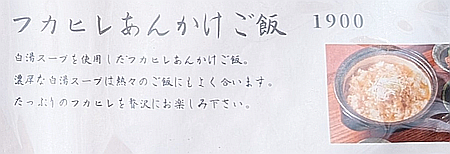 フカヒレあんかけご飯 1900
白湯スープを使用しだフカヒレあんかけご飯。
濃厚な白湯スープは熱々のご飯にもよく合います。
たっぷりのフカヒレを贅沢にお楽しみ下さい。